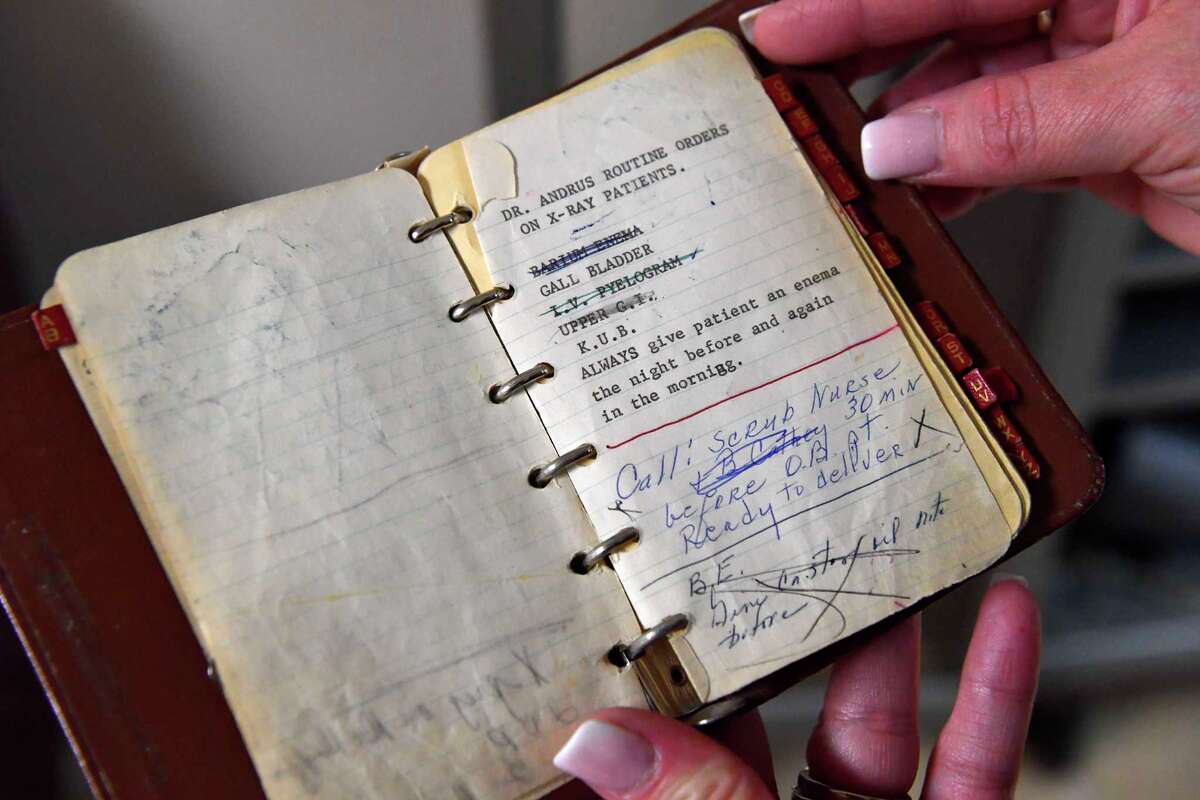 DR. ANDRUS ROUTINE ORDERS
ON X-RAY PATIENTS.
BARIUM ENEMA
GALL BLADDER
I.V. PYELOGRAM
UPPER G.I.
K.U.B.
ALWAYS give patient an enema
the night before and again
in the morning.
Call: Scrub Nurse
30 min
before O.B. pt. X
Ready to deliver
B.E.
Give Castor oil nite
before